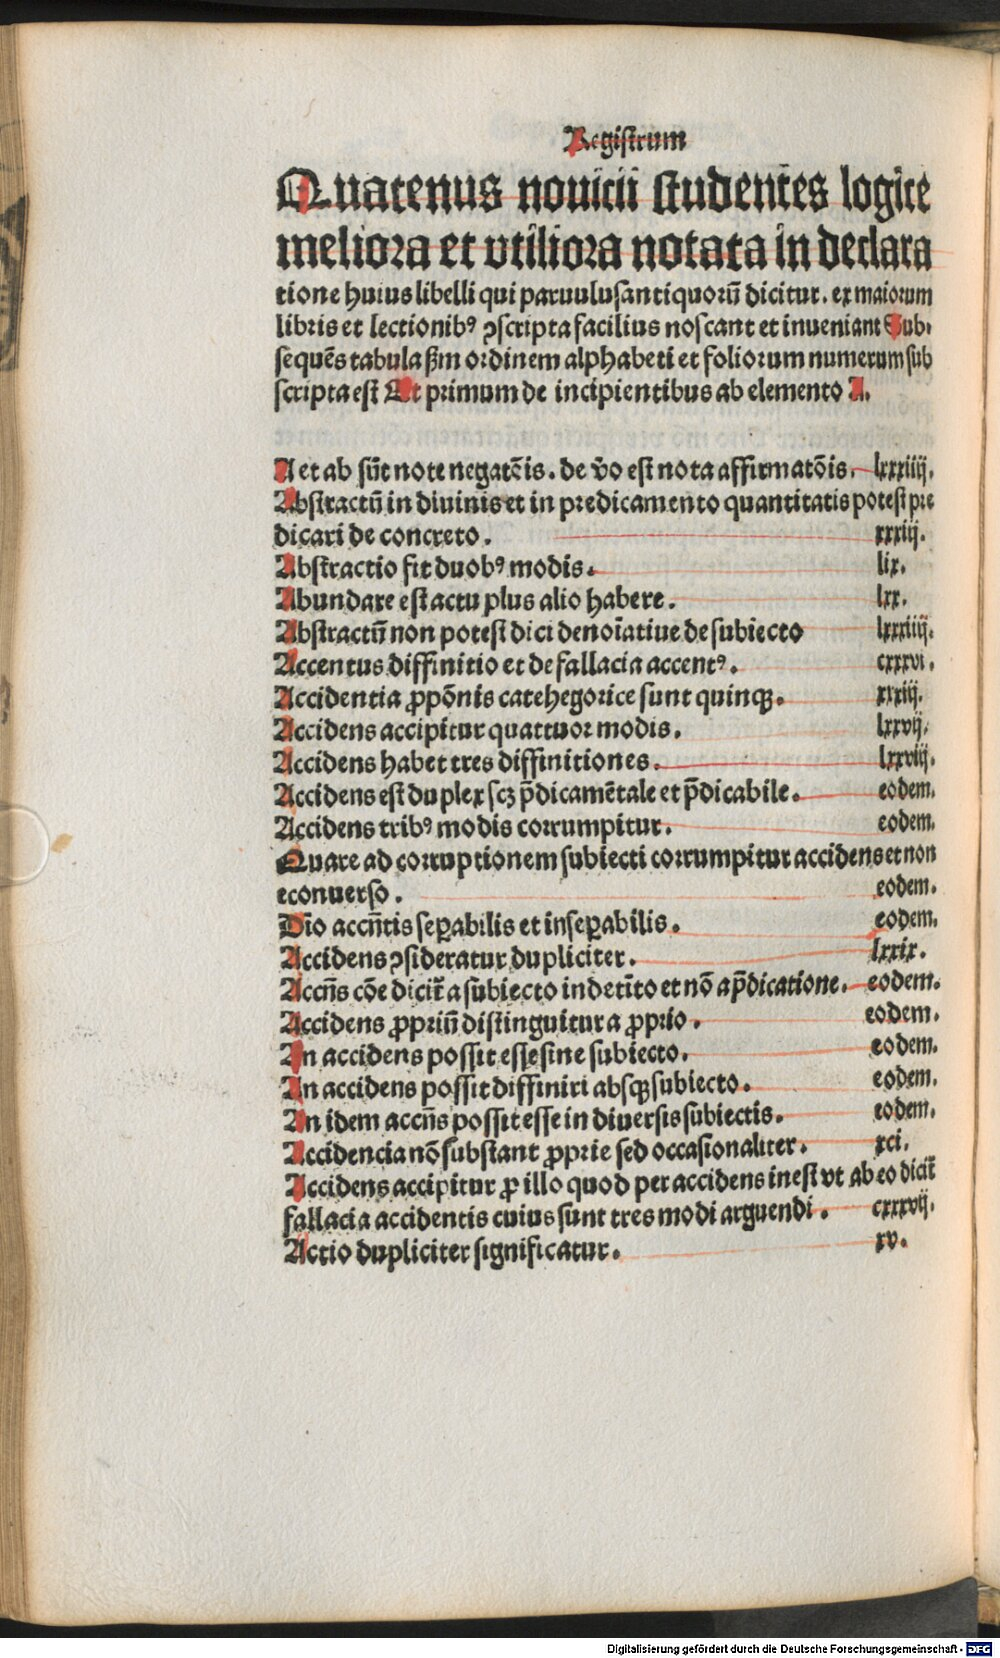 Registrum
Quatenus nouicii studentes logice
meliora et vtiliora notata in declara
tione huius libelli qui paruulusantiquorū dicitur. ex maiorum
libris et lectionibꝰ ꝯscripta facilius noscant et inueniant Sub
sequēs tabula ẜm ordinem alphabeti et foliorum numerum sub
scripta est Et primum de incipientibus ab elemento A.
A et ab sūt note negatēis. de v̄o est nota affirmatōis. lxxxiiij.
Abstractū in diuinis et in predicamento quantitatis potest pre
dicari de concreto. xxxiij.
Abstractio fit duobꝰ modis. lix.
Abundare est actu plus alio habere. lxx.
Abstractū non potest dici denoīatiue de subiecto lxxxiiij.
Accentus diffinitio et de fallacia accentꝰ. cxxxvi.
Accidentia ꝓpōnis cathegorice sunt quinqꝫ. xxxiij.
Accidens accipitur quattuor modis. lxxvij.
Accidens habet tres diffinitiones. lxxviij.
Accidens est duplex scꝫ p̄dicamētale et p̄dicabile. eodem.
Accidens tribꝰ modis corrumpitur. eodem.
Quare ad corruptionem subiecti corrumpitur accidens et non
econuerso. eodem.
Dīo accn̄tis seꝑabilis et inseꝑabilis. eodem.
Accidens ꝯsideratur dupliciter. lxxix.
Accn̄s cōe dicit̄ a subiecto indetīto et nō a p̄dicatione. eodem.
Accidens ꝓpriū distinguitur a ꝓprio. eodem.
An accidens possit esse sine subiecto. eodem.
An accidens possit diffiniri absqꝫ subiecto. eodem.
An idem accn̄s possit esse in diuersis subiectis. eodem.
Accidencia nō substant ꝓprie sed occasionaliter. xci.
Accidens accipitur ꝓ illo quod per accidens inest vt ab eo dicit̄
fallacia accidentis cuius sunt tres modi arguendi. cxxxvij.
Actio dupliciter significatur. xv.
Digitalisierung gefördert durch die Deutsche Forschungsgemeinschaft - DFG